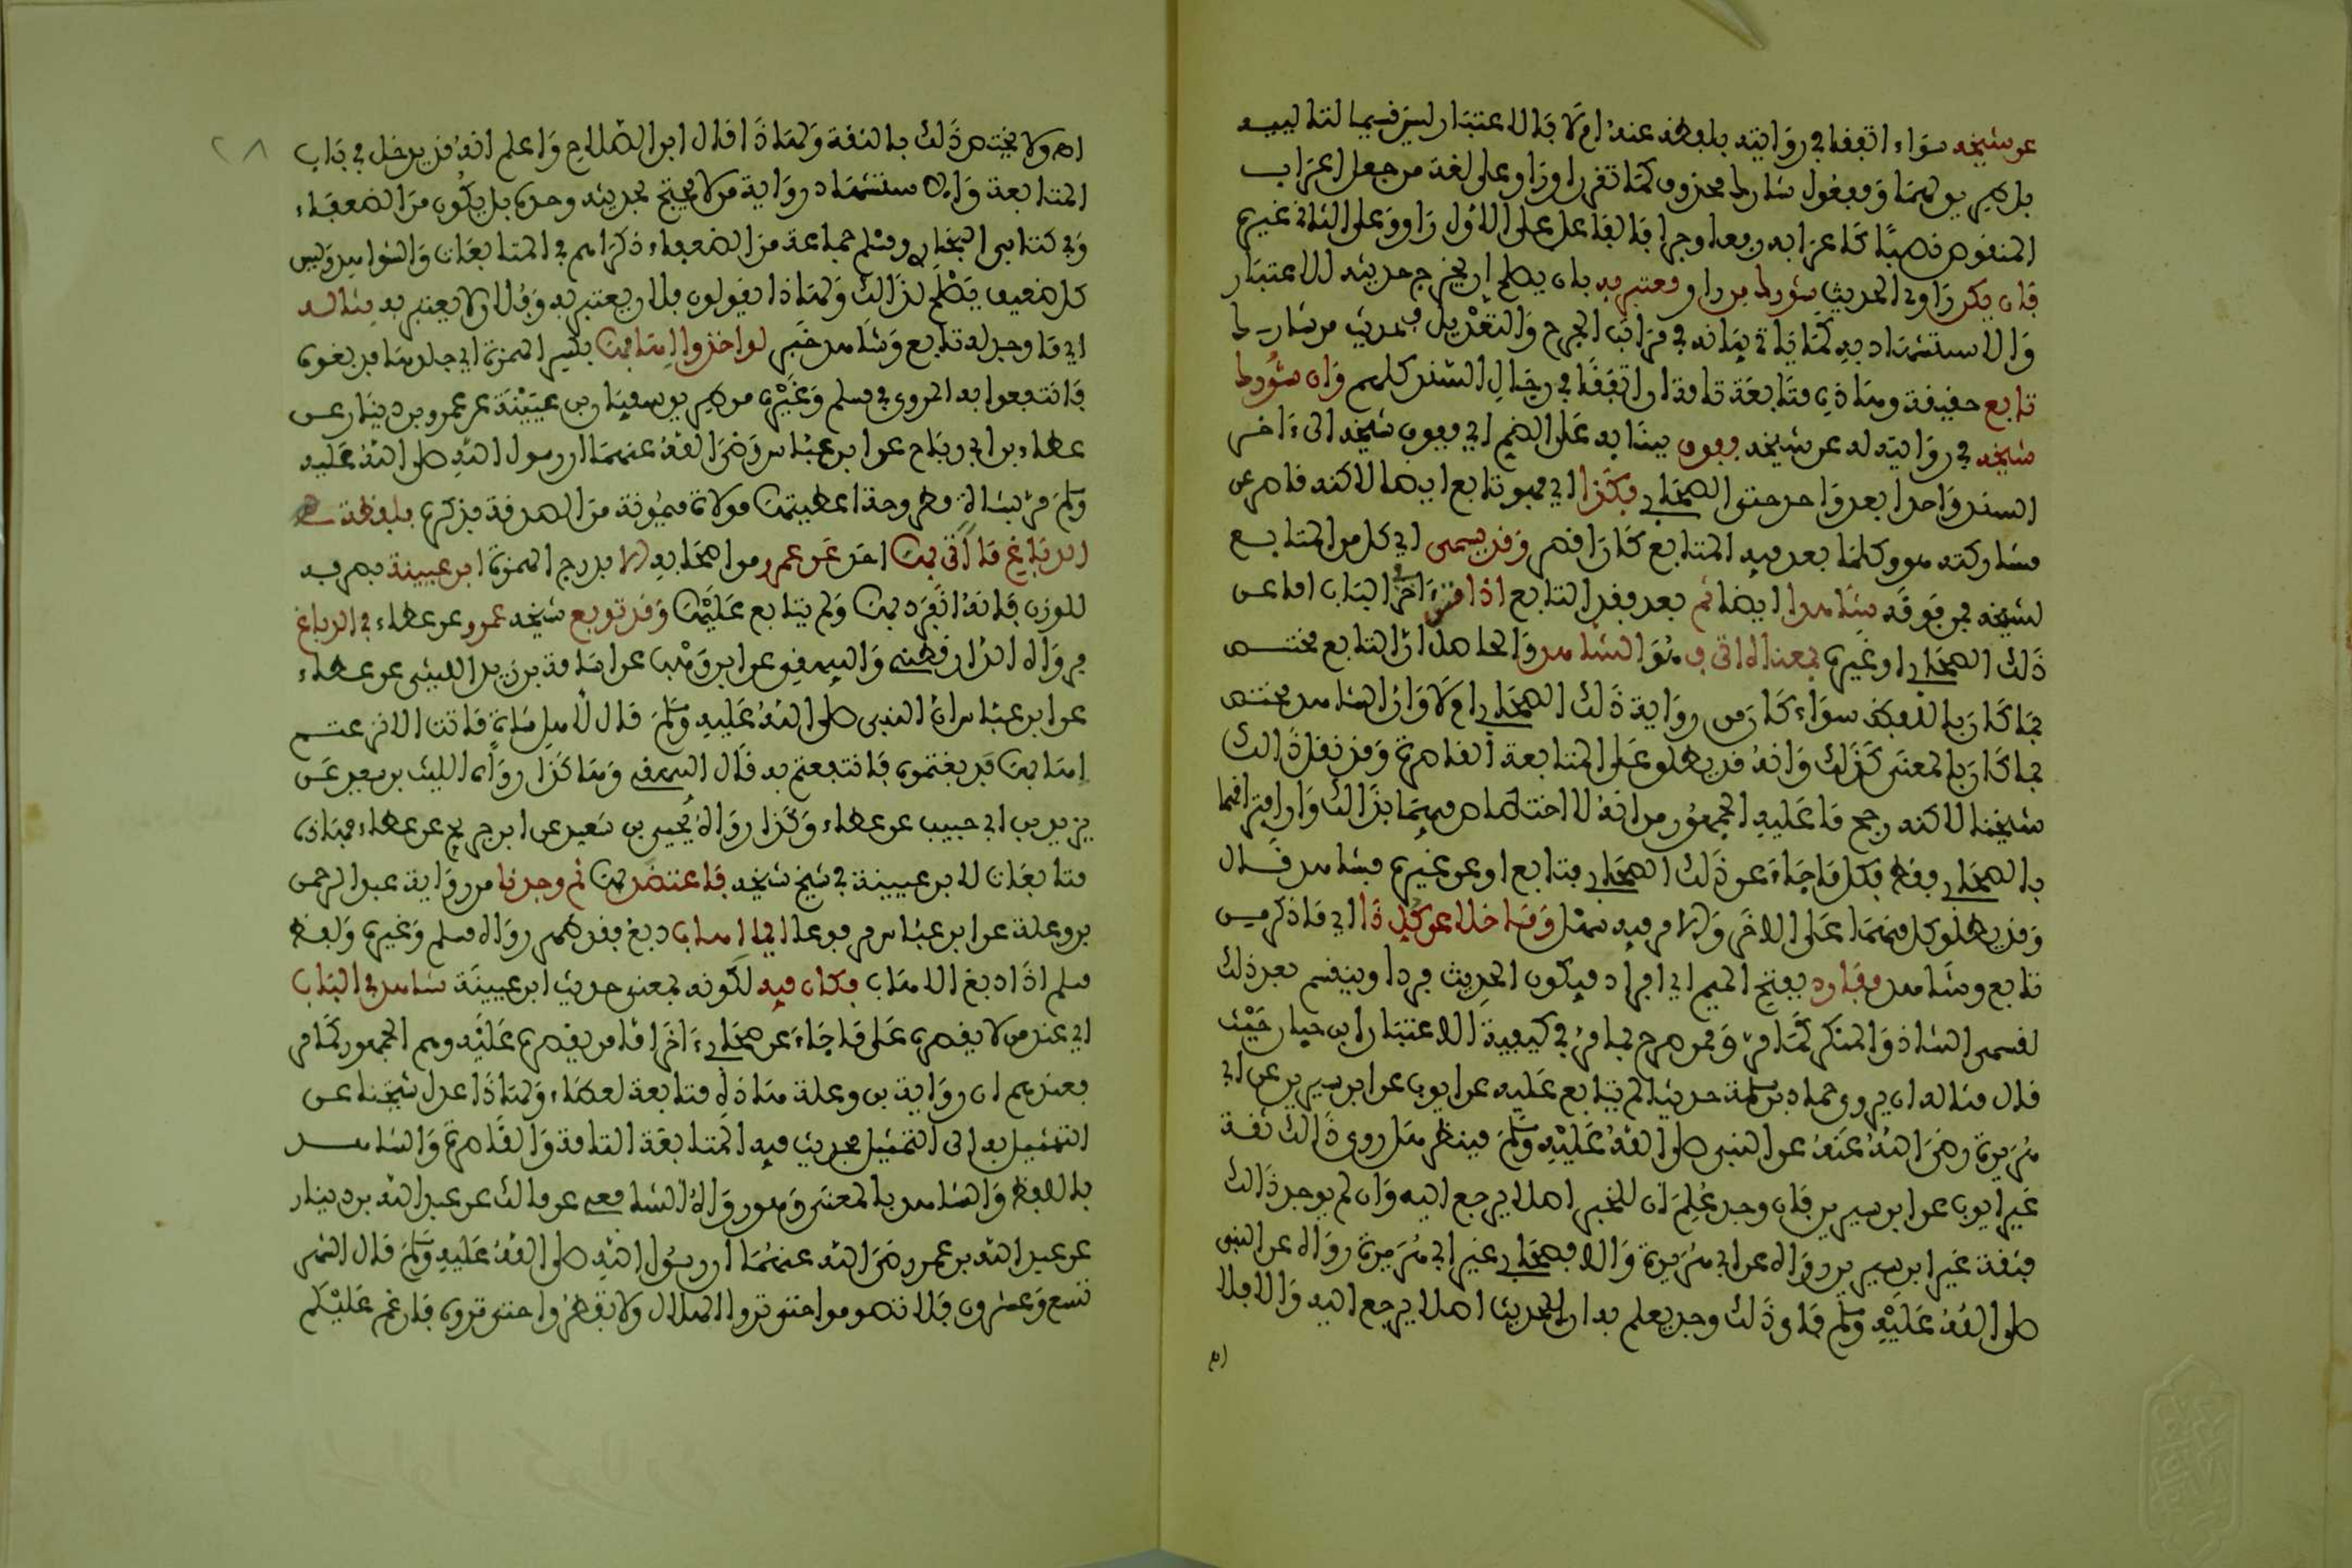 عن شيخه سواء اتفقا في روايته بلفظه عنه ام لا فالاعتبار ليس قسيما لتالييه
بل هو يوليهما ومفعول شارك محذوف كما تقرر اوراو على لغة من جعل اعراب
المنقوص نصبًا كاعرابه رفعا وجرا فالفاعل على الاول راو وعلى الثاني غيره
فان يكن راوي الحديث شورك من راو معتبر به بان يصلح ان يخرج حديثه للاعتبار
والاستشهاد به كما ياتي بيانه في مراتب الجرح والتعديل فحديث من شارك
تابع حقيقة وهاذه متابعة تامة ان اتفقا في رجال السند كلهم وان شورك
شيخه في روايته له عن شيخه ففوق ببنايه على الضم اي ففوق شيخه الى ءاخر
السند واحدا بعد واحد حتى الصحابي فكذا اي فهو تابع ايضا لاكنه قاصر عن
مشاركته هو وكلما بعد فيه المتابع كان انقص وقد يسمى اي كل من المتابع
لشيخه فمن فوقه شاهدا ايضا ثم بعد فقد التابع اذا متن ءاخر في الباب اما عن
ذلك الصحابي او غيره بمعناه اتى فهو الشاهد والحاصل ان التابع مختص
بما كان باللفظ سواء كان من رواية ذلك الصحابي ام لا وان الشاهد مختص
بما كان بالمعنى كذلك وانه قد يطلق على المتابعة القاصرة وقد نقل ذالك
شيخنا لاكنه رجح ما عليه الجمهور من انه لا اختصاص فيهما بذالك وان افتراقهما
بالصحابي فقط فكل ما جاء عن ذلك الصحابي فتابع او عن غيره فشاهد قال
وقد يطلق كل منهما على الاخر والامر فيه سهل وما خلا عن كل ذا اي ما ذكر من
تابع وشاهد مفارد بفتح الميم اي افراد فيكون الحديث فردا وينقسم بعد ذلك
لقسمي الشاذ والمنكر كما مر وممن صرح بما مر في كيفية الاعتبار ابن حبان حيث
قال مثاله ان يروي حماد بن سلمة حديثا لم يتابع عليه عن ايوب عن ابن سيرين عن ابي
هريرة رضي الله عنه عن النبي صلى الله عليه وسلم فينظر هل روى ذالك ثقة
غير ايوب عن ابن سيرين فان وجد علم ان للخبر اصلا يرجع اليه وان لم يوجد ذالك
فثقة غير ابن سيرين رواه عن ابي هريرة والا فصحابي غير ابي هريرة رواه عن النبي
صلى الله عليه وسلم فاي ذلك وجد يعلم به ان للحديث اصلا يرجع اليه والا فلا
اه‍
اه‍ ولا يختص ذلك بالثقة ولهاذا قال ابن الصلاح واعلم انه قد يدخل في باب
المتابعة والاستشهاد رواية من لا يحتج بحديثه وحده بل يكون من الضعفاء
وفي كتابي البخاري ومسلم جماعة من الضعفاء ذكراهم في المتابعات والشواهد وليس
كل ضعيف يصلح لذالك ولهاذا يقولون فلان يعتبر به وفلان لا يعتبر به مثاله
اي ما وجد له تابع وشاهد خبر لو اخذوا اهابها بكسر الهمزة اي جلدها فدبغوه
فانتفعوا به المروي في مسلم وغيره من طريق سفيان بن عيينة عن عمرو بن دينار عن
عطاء بن ابي رباح عن ابن عباس رضي الله عنهما ان رسول الله صلى الله عليه
وسلم مر بشاة مطروحة اعطيتها مولاة ميمونة من الصدقة فذكره فلفظة
الدباغ ما اتى بها احد عن عمرو من اصحابه الا بدرج الهمزة ابن عيينة بصرفه
للوزن فانه انفرد بها ولم يتابع عليها وقد توبع شيخه عمرو عن عطاء في الدباغ
فرواه الدارقطني والبيهقي عن ابن وهب عن اسامة بن زيد الليثي عن عطاء
عن ابن عباس ان النبي صلى الله عليه وسلم قال لاهل شاة ماتت الا نزعتم
اهابها فدبغتموه فانتفعتم به قال البيهقي وهاكذا رواه الليث بن سعد عن
يزيد بن ابي حبيب عن عطاء وكذا رواه يحيى بن سعيد عن ابن جريج عن عطاء فهاذه
متابعات لابن عيينة في شيخ شيخه فاعتضد بها ثم وجدنا من رواية عبد الرحمن
بن وعلة عن ابن عباس مرفوعا ايما اهاب دبغ فقد طهر رواه مسلم وغيره ولفظ
مسلم اذا دبغ الاهاب فكان فيه لكونه بمعنى حديث ابن عيينة شاهد في الباب
اي عند من لا يقصره على ما جاء عن صحابي ءاخر اما من يقصره عليه وهم الجمهور كما مر
فعندهم ان رواية بن وعلة هاذه متابعة لعطاء ولهاذا عدل شيخنا عن
التمثيل به الى التمثيل بحديث فيه المتابعة التامة والقاصرة والشاهد
باللفظ والشاهد بالمعنى وهو رواه الشافعي عن مالك عن عبد الله بن دينار
عن عبد الله بن عمر رضي الله عنهما ان رسول الله صلى الله عليه وسلم قال الشهر
تسع وعشرون فلا تصوموا حتى تروا الهلال ولا تفطروا حتى تروه فان غم عليكم